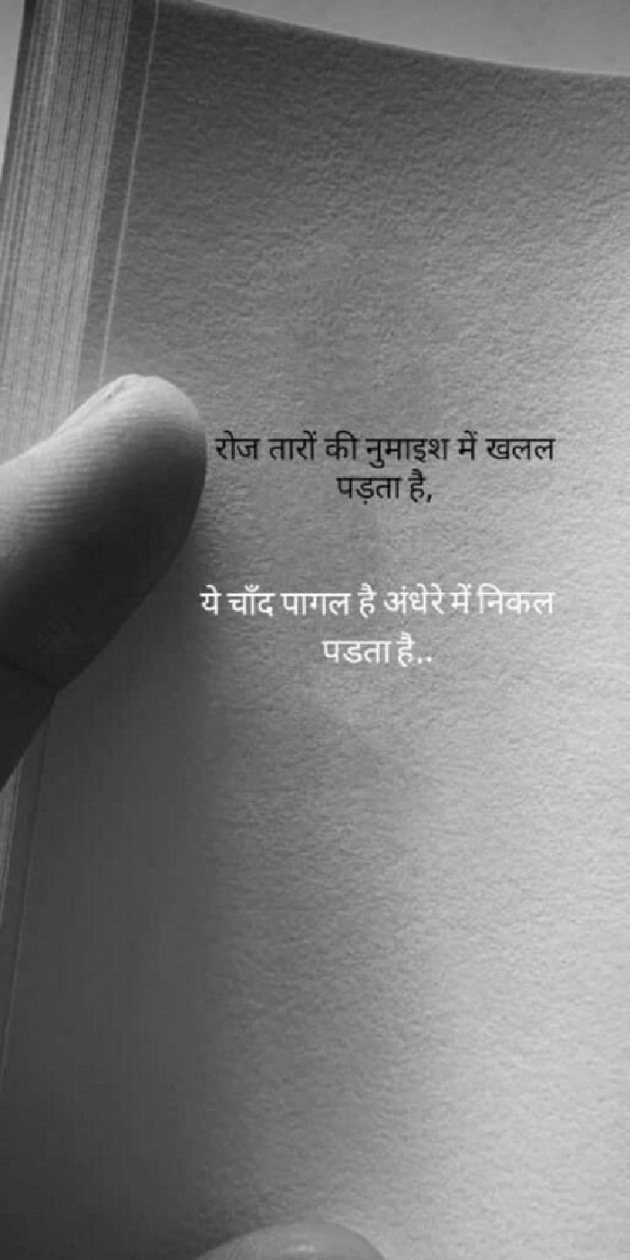 रोज तारों की नुमाइश में खलल
पड़ता है,
ये चाँद पागल है अंधेरे में निकल
पडता है..